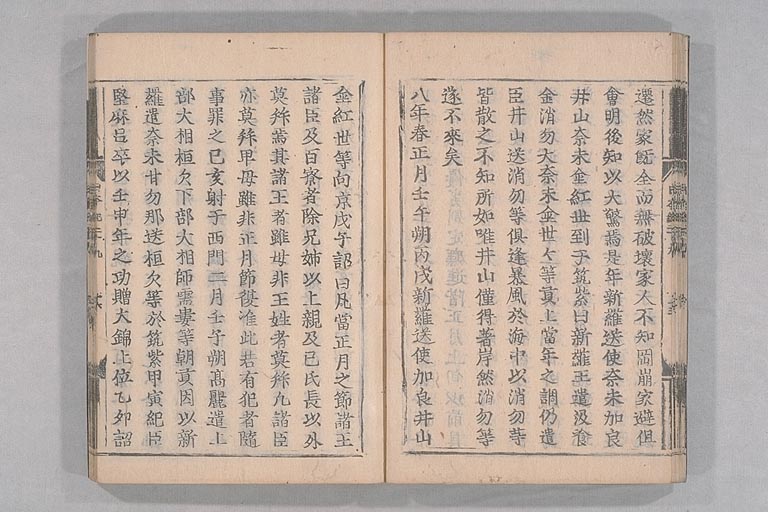 遷然家既全而無破壞家人不知岡崩家避但
會明後知以大驚焉是年新羅送使奈末加良
井山奈末金紅世到于筑紫曰新羅王遣汲飡
金消勿大奈末金世々等貢上當年之調仍遣
臣井山送消勿等俱逢暴風於海中以消勿等
皆散之不知所如唯井山僅得著岸然消勿等
遂不來矣
八年春正月壬午朔丙戌新羅送使加良井山
金紅世等向京戊子詔曰凡當正月之節諸王
諸臣及百寮者除兄姉以上親及己氏長以外
莫拜焉其諸王者雖母非王姓者莫拜凡諸臣
亦莫拜卑母雖非正月節復准此若有犯者隨
事罪之己亥射于西門二月壬子朔高麗遣上
部大相桓欠下部大相師需婁等朝貢因以新
羅遣奈末甘勿那送桓欠等於筑紫甲寅紀臣
堅麻呂卒以壬申年之功贈大錦上位乙卯詔